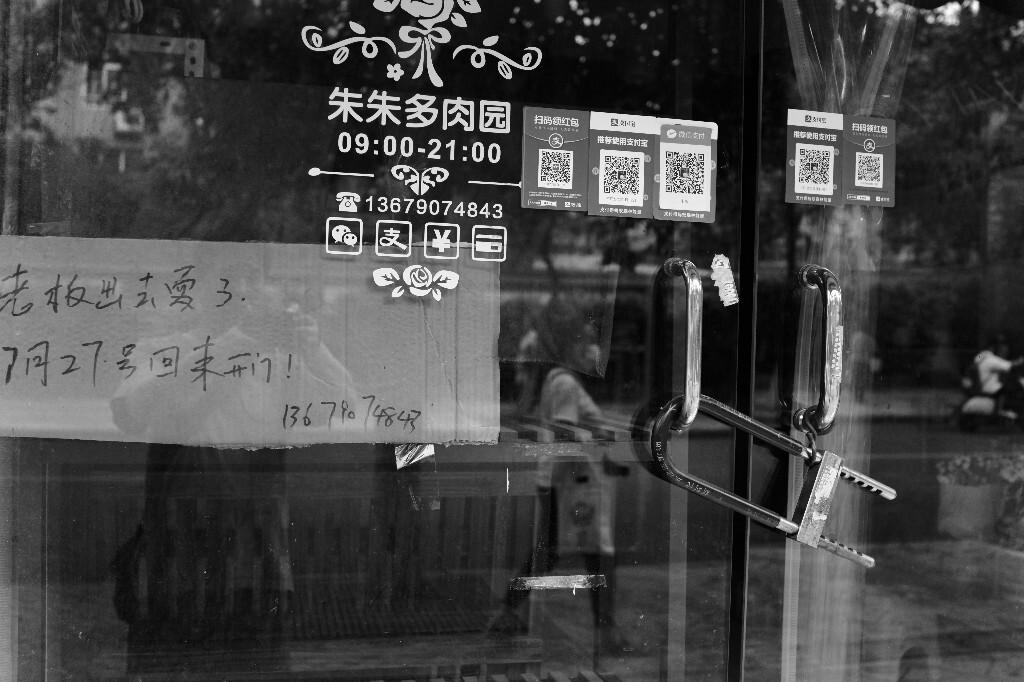 朱朱多肉园
09:00-21:00
13679074843
老板出去耍了.
7月27号回来开门!
13679074843
扫码领红包
支付宝
推荐使用支付宝
微信支付
支付宝
推荐使用支付宝
扫码领红包